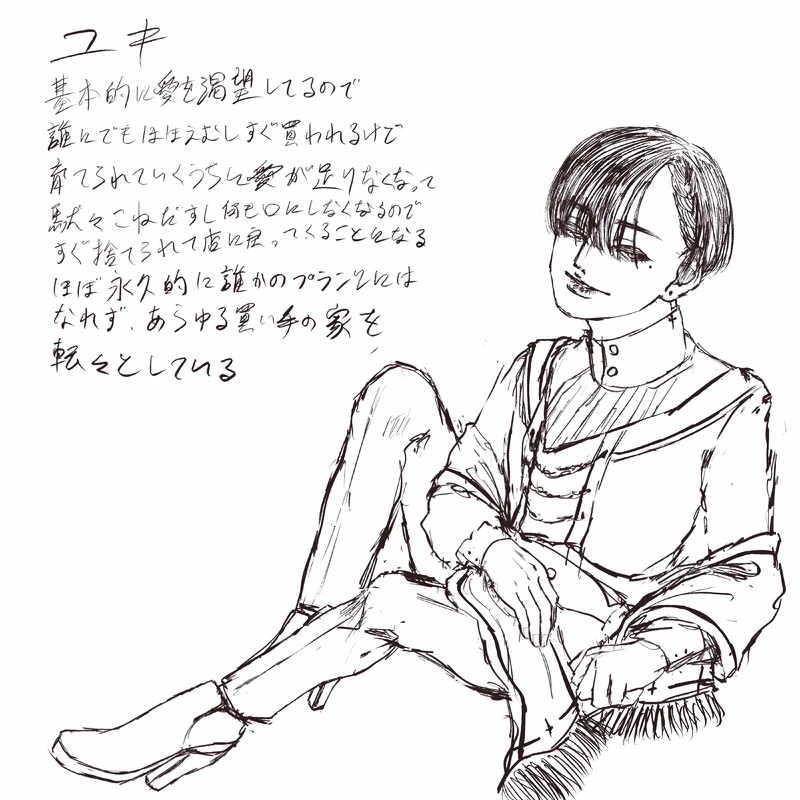 ユキ
基本的に愛を渇望してるので
誰にでもほほえむしすぐ買われるけど
育てられていくうちに愛が足りなくなって
駄々こねだすし何も口にしなくなるので
すぐ捨てられて店に戻ってくることになる
ほぼ永久的に誰かのプランツには
なれず、あらゆる買い手の家を
転々としている